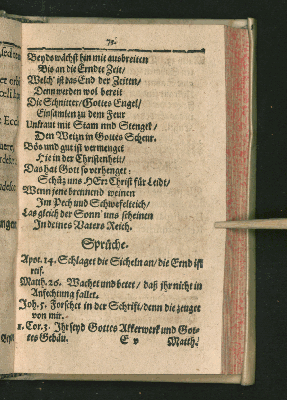 72.
Beyds wächst hin mit ausbreiten
Bis an die Erndte Zeit/
Welch' ist das End der Zeiten/
Denn werden wol bereit
Die Schnitter/Gottes Engel/
Einsamlen zu dem Feur
Unkraut mit Stam und Stengel/
Den Weizn in Gottes Scheur.
Bös und gut ist vermenget
Hie in der Christenheit/
Das hat Gott so verhenget:
Schüz uns HErr Christ für Leidt/
Wenn jene brennend weinen
Im Pech und Schwefelteich/
Las gleich der Sonn' uns scheinen
In deines Vaters Reich.
Sprüche.
Apoc. 14. Schlaget die Sicheln an/die Ernd ist
reif.
Matth. 26. Wachet und betet/ daß ihr nicht in
Anfechtung fallet.
Joh. 5. Forschet in der Schrift/denn die zeuget
von mir.
1. Cor. 3. Ihr seyd Gottes Akkerwerk und Got-
tes Gebäu.
E v
Matth.